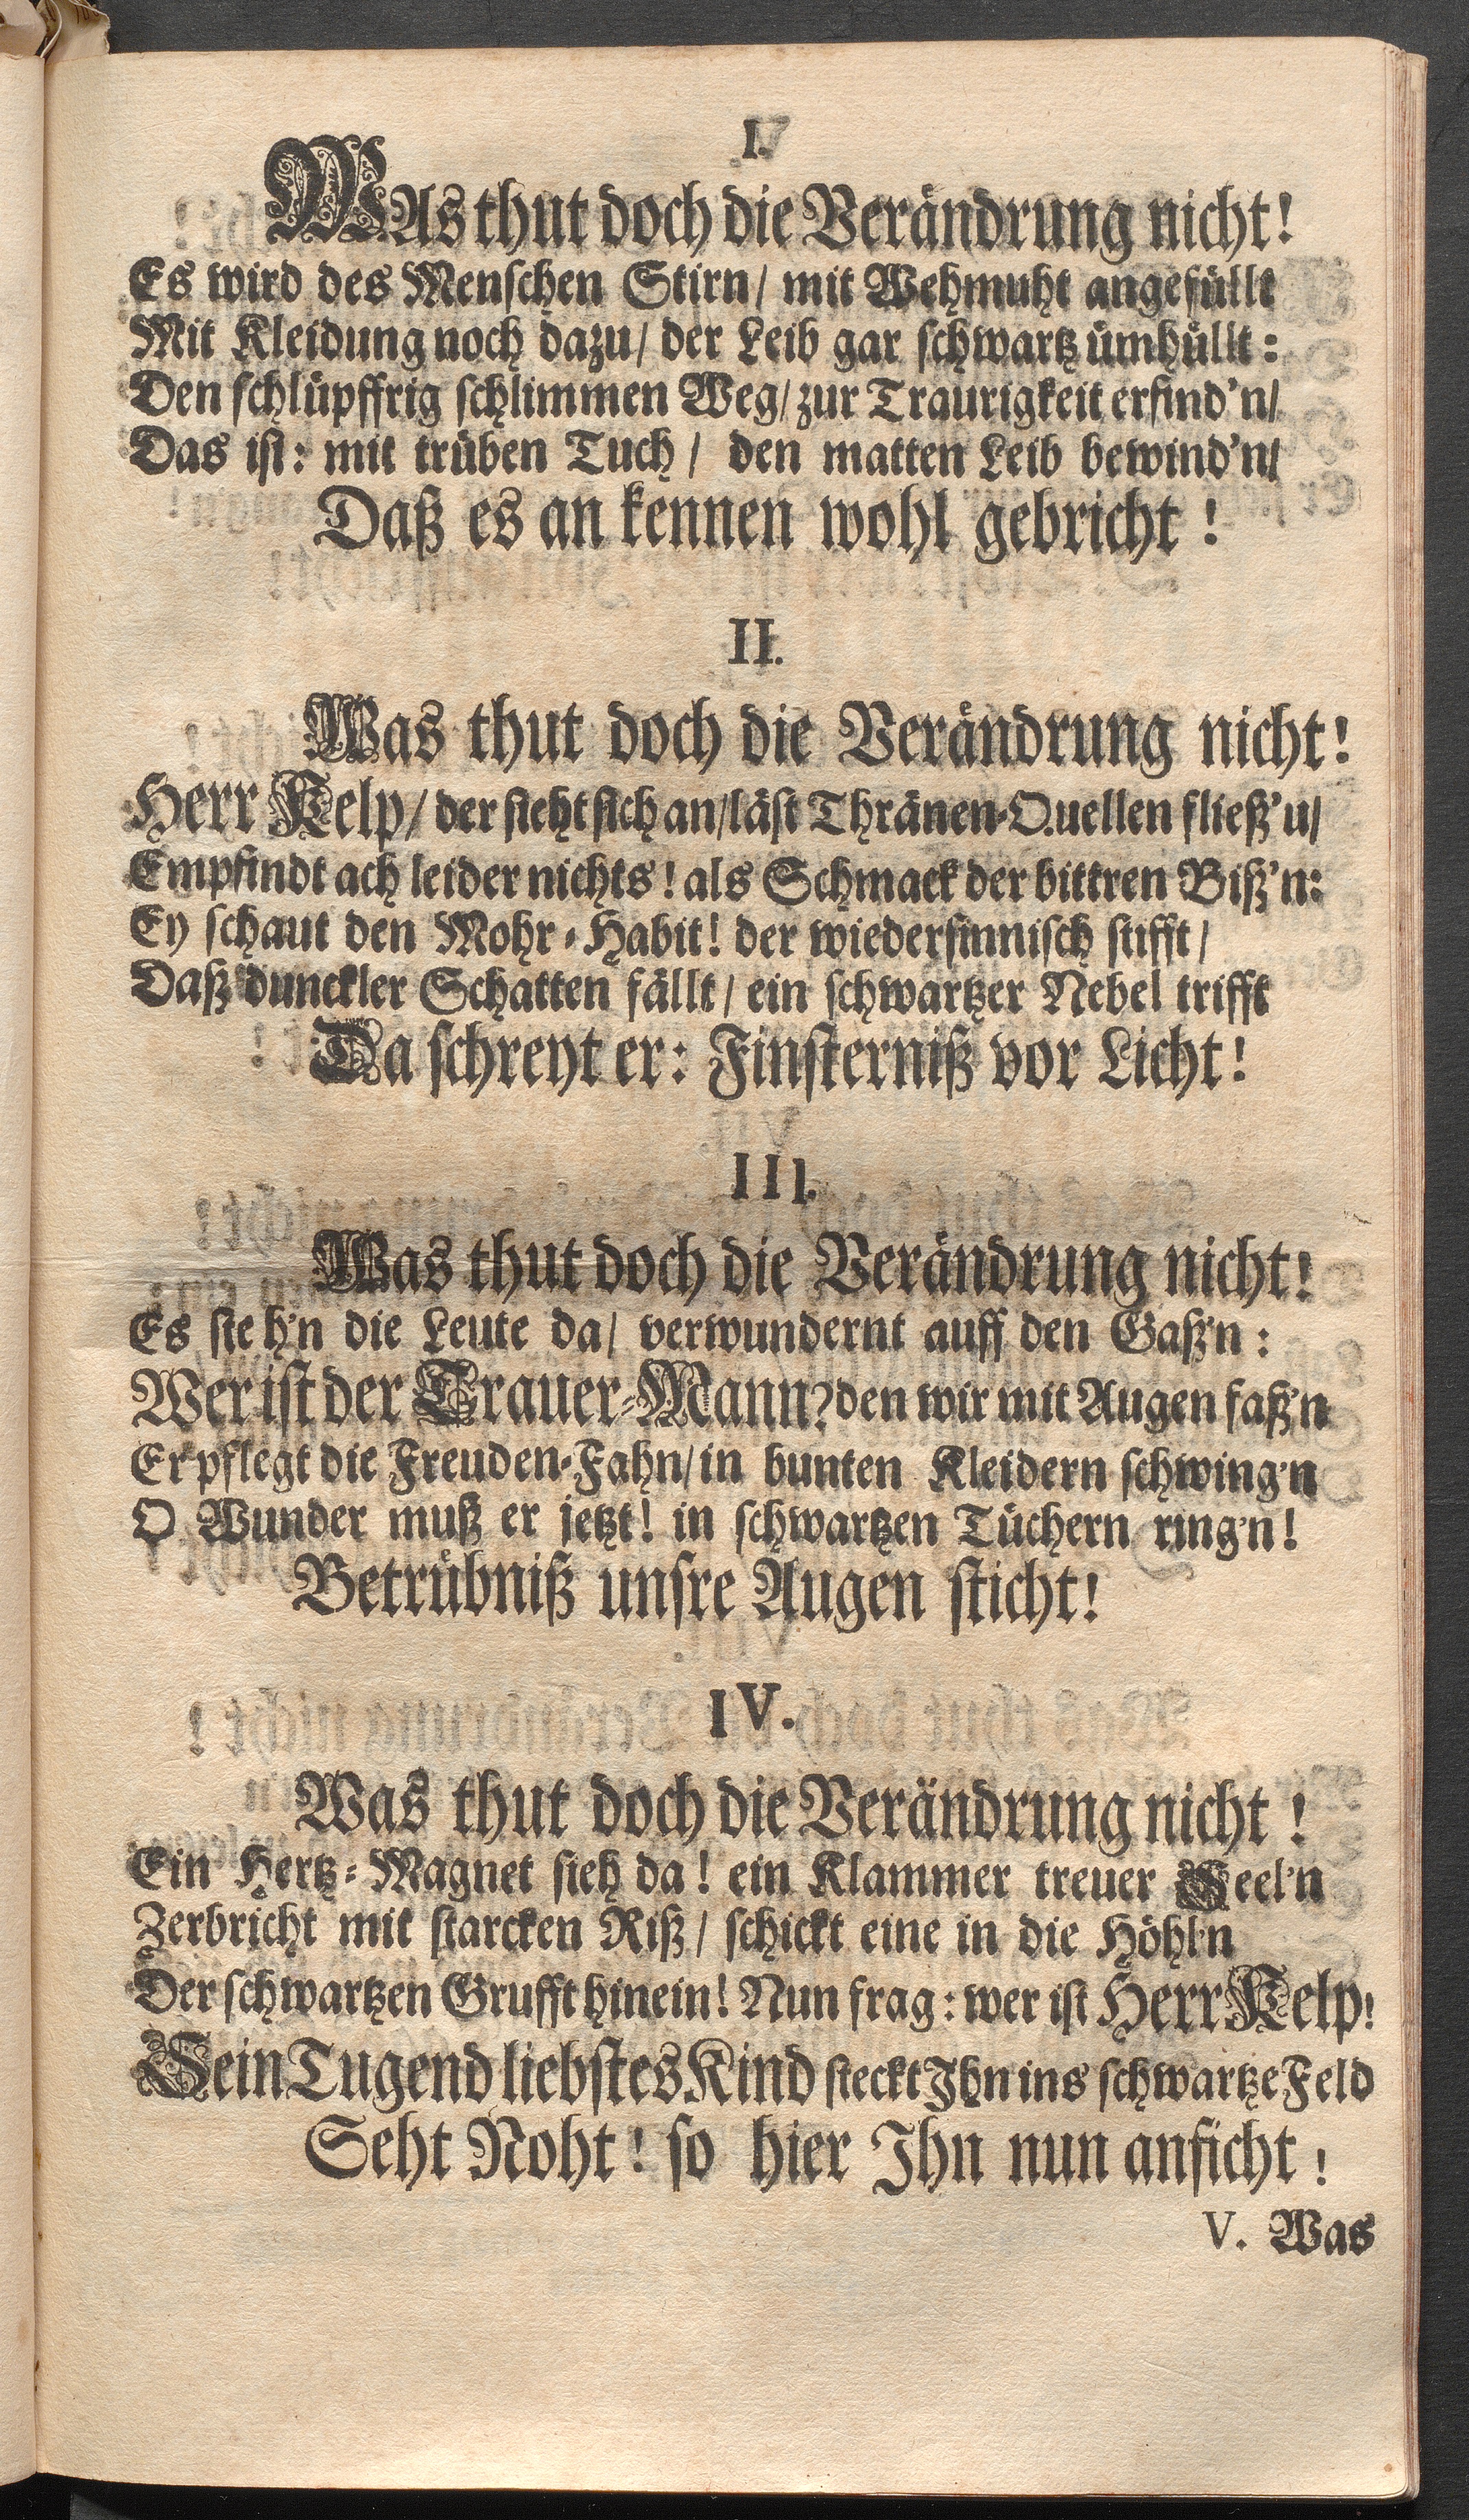 I.
WAs thut doch die Verändrung nicht!
Es wird des Menschen Stirn/ mit Wehmuht angefüllt
Mit Kleidung noch dazu/ der Leib gar schwartz ümhüllt:
Den schlüpffrig schlimmen Weg/ zur Traurigkeit erfind'n/
Das ist: mit trüben Tuch/ den matten Leib bewind'n/
Daß es an kennen wohl gebricht!
II.
Was thut doch die Verändrung nicht!
Herr Kelp/ der sieht sich an/läst Thränen-Quellen fließ'u/
Empfindt ach leider nichts! als Schmack der bittren Biß'n:
Ey schaut den Mohr-Habit! der wiedersinnisch stifft/
Daß dunckler Schatten fällt/ ein schwartzer Nebel trifft
Da schreyt er: Finsterniß vor Licht!
III.
Was thut doch die Verändrung nicht!
Es steh'n die Leute da/ verwundernt auff den Gaß'n:
Wer ist der Trauer-Mann? den wir mit Augen faß'n
Er pflegt die Freuden-Fahn/ in bunten Kleidern schwing'n
O Wunder muß er jetzt! in schwartzen Tüchern ring'n!
Betrübniß unsre Augen sticht!
IV.
Was thut doch die Verändrung nicht!
Ein Hertz-Magnet sieh da! ein Klammer treuer Seel'n
Zerbricht mit starcken Riß/ schickt eine in die Höhl'n
Der schwartzen Grufft hinein! Nun frag: wer ist Herr Kelp!
Sein Tugend liebstes Kind steckt Ihn ins schwartze Feld
Seht Noht! so hier Ihn nun anficht!
V. Was